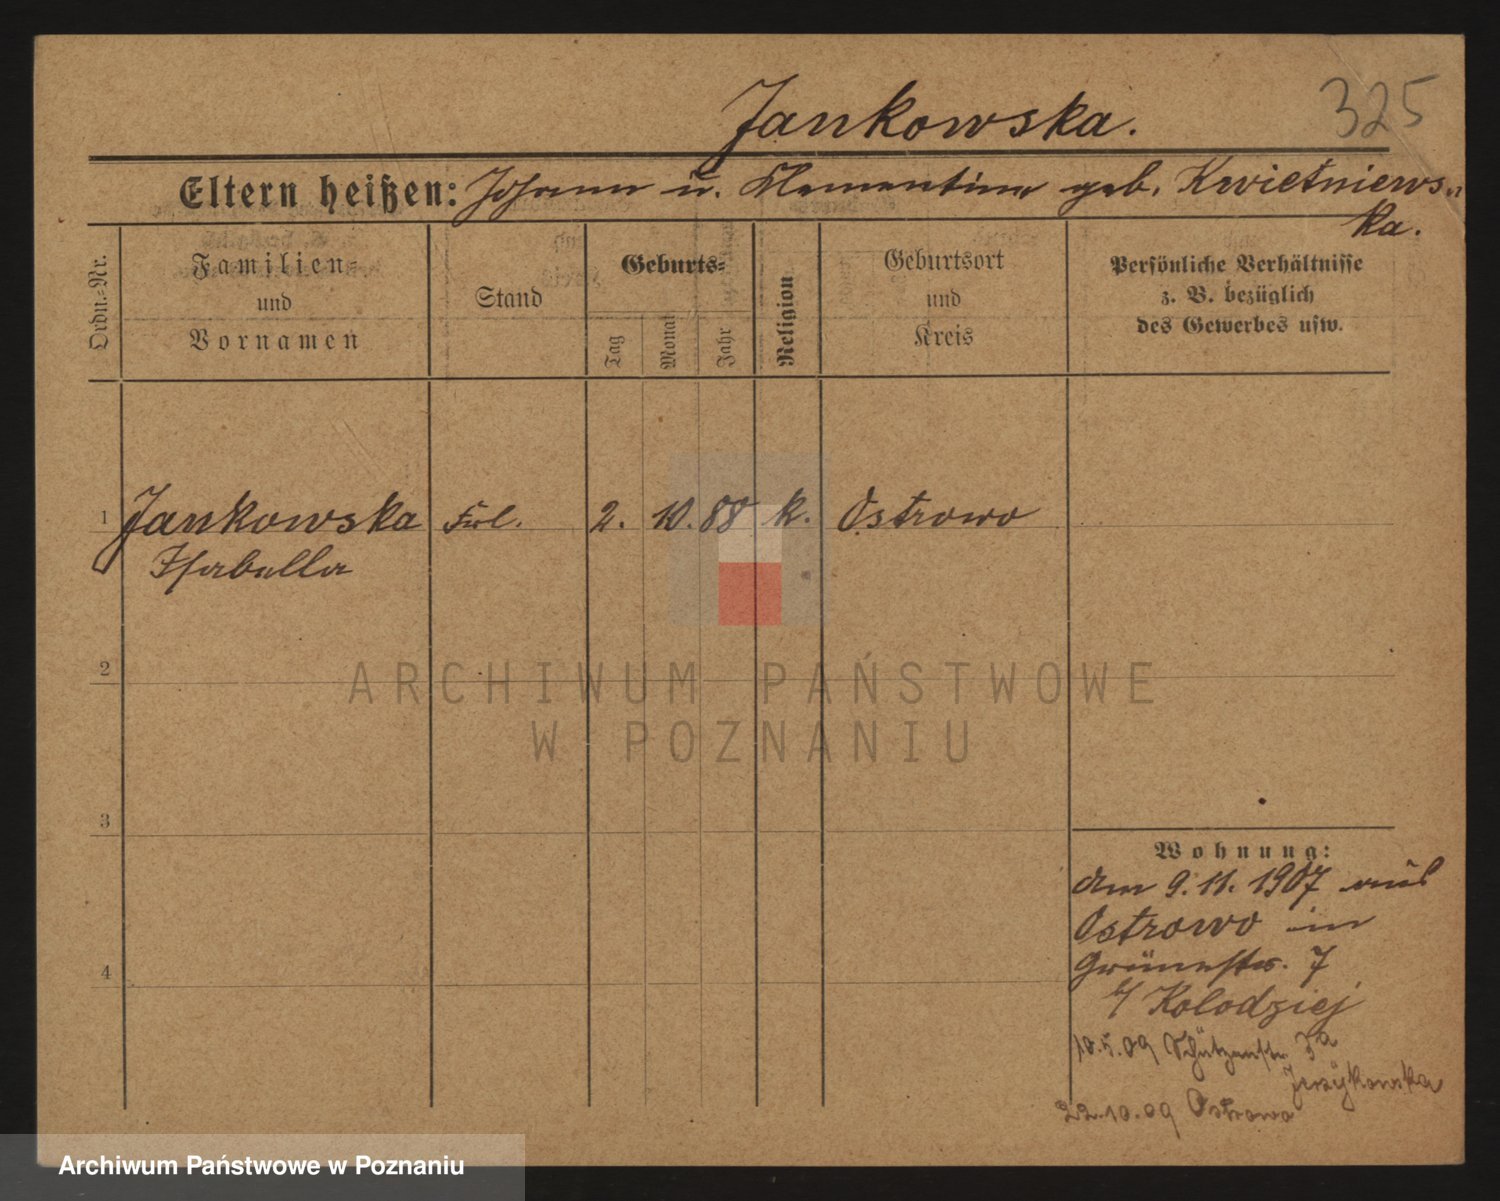 Jankowska.
325
Eltern heißen: Johann u. Klementine geb. Kwietniews-
ka.
Ordn.-Nr.
Familien-
und
Vornamen
Stand
Geburts-
Tag
Monat
Jahr
Religion
Geburtsort
und
Kreis
Persönliche Verhältnisse
z. B. bezüglich
des Gewerbes usw.
1 Jankowska Frl. 2. 10. 88 k. Ostrowo
Isabella
2
ARCHIWUM PAŃSTWOWE
W POZNANIU
3
Wohnung:
Am 9.11.1907 aus
Ostrowo in
Grünestr. 7
b/ Kolodziej
4
10.5.09 Schützenstr 3a
Jerzykowska
22.10.09 Ostrowo
Archiwum Państwowe w Poznaniu